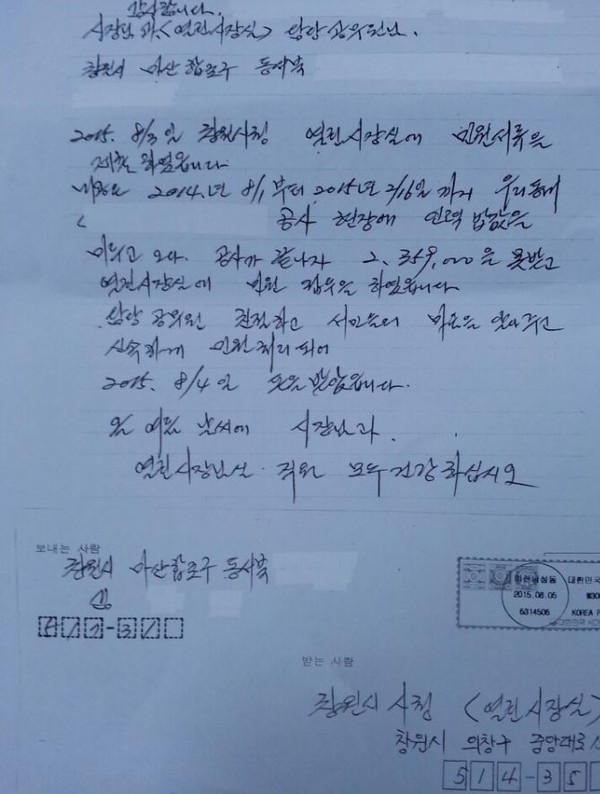 감사합니다.
시장님 과 <열린시장실> 담당 공위원님.
창원시 마산 합포구 동서북
2015. 8/3일 창원시청 열린시장실에 민원서류을
제출 하였읍니다
내용은 2014.년 8/1부터 2015년 2/16일 까지 우리동네
공사 현장에 인력 밥값을
미루고 오다. 공사가 끝나자 2.359,000을 못받고
열린시장실에 민원 접수을 하였읍니다
담당 공위원 친절하고 서민들의 마음을 알아주고
신속하게 민원처리 되어
2015. 8/4일 돈을 받았읍니다.
여름 날씨에 시장님과.
열린시장님실. 직원 모두 건강 하십시오
보내는 사람
창원시 마산합포구 동서북
받는 사람
창원시 시청 <열린시장실>
창원시 의창구 중앙대로
514-35
2015.08.05
6314506
대한민국
KOREA P